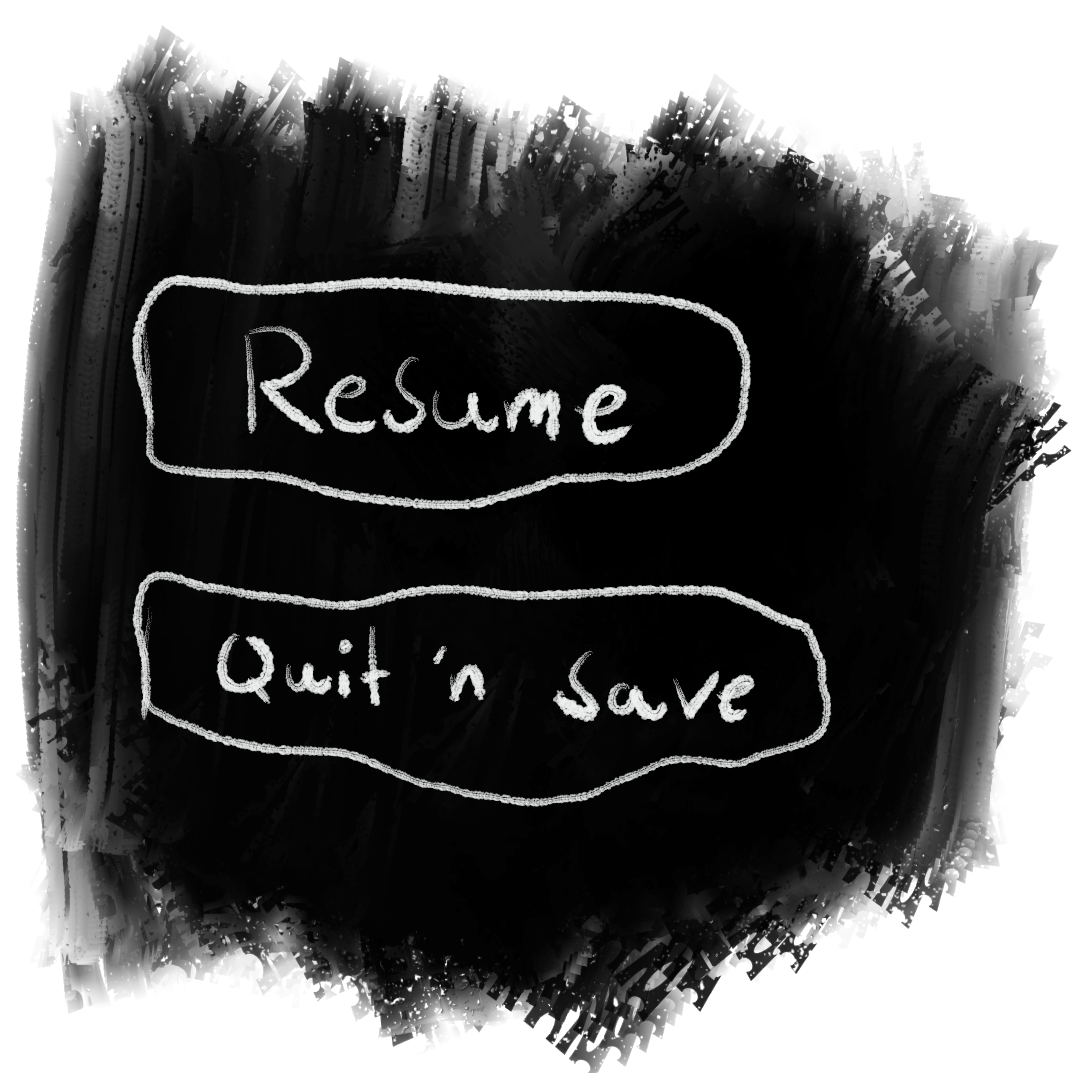 Resume
Quit 'n Save